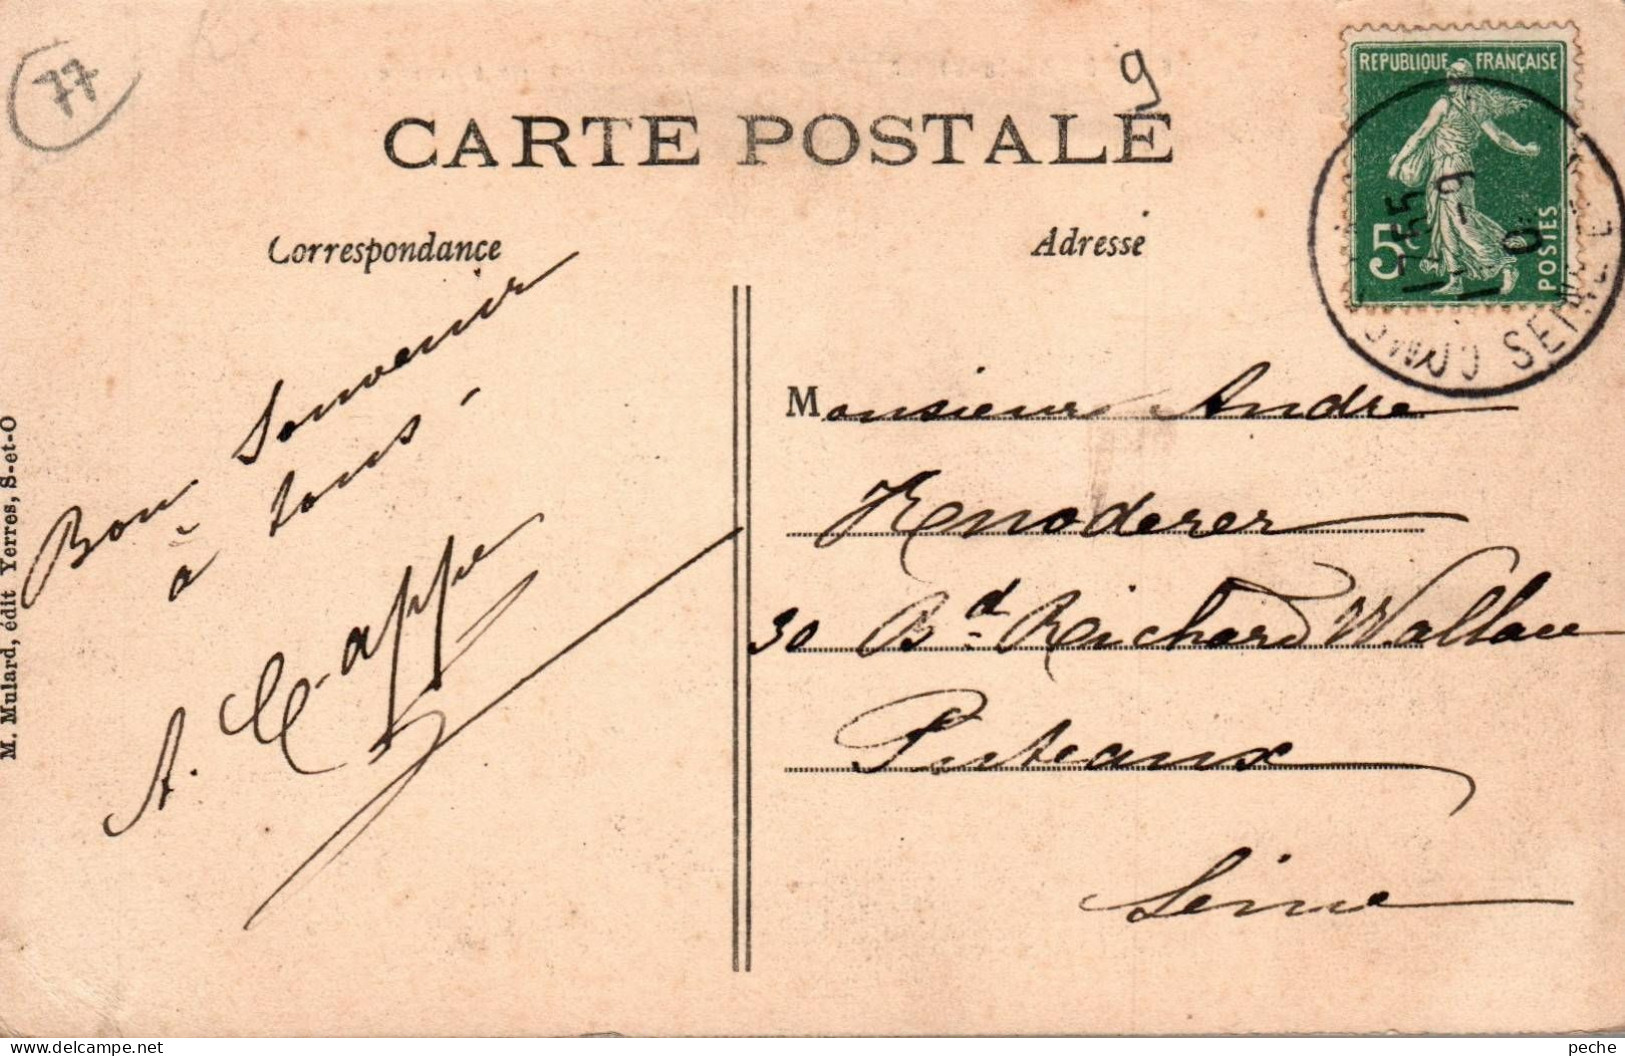 77
9
CARTE POSTALE
Correspondance
Adresse
REPUBLIQUE FRANÇAISE
5c
POSTES
Bon Souvenir
à tous -
A. Cappe
Monsieur Andre
Knoderer
30 Bd. Richard Wallace
Puteaux
Seine
M. Mulard, édit Yerres, S-et-O
peche